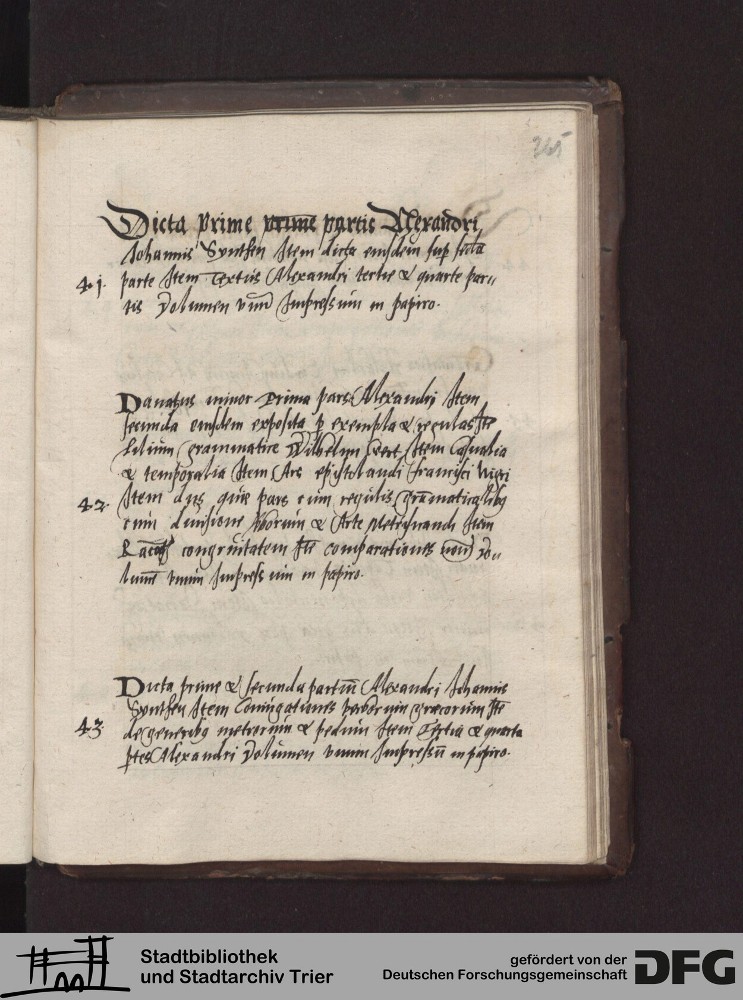 365
Dicta prime prime partis Alexandri
Johannis Synthen Item dicta eiusdem sup secda
41. parte Item Textus Alexandri tertie & quarte par//
tis Volumen vnū Impressum in papiro.
Donatus minor Prima pars Alexandri Item
secunda eiusdem exposita p exempla & regulas Itē
Lilium grammatice Wilhelmi Item Casualia
& temporalia Item Ars epistolandi francisci Nigri
42. Item dns que pars cum regulis grāmaticalibq
cum diuisione & Arte metrificandi Item
congruitatem Itē comparationes nouū vo//
lumē vnum Impressum in papiro.
Dicta prime & secunda partiū Alexandri Johannis
Synthen Item Coniugationes verborum grecorum Itē
43. de generibq metrorum & pedum Item Tertia & quarta
ptes Alexandri Volumen vnum Impressū in papiro.
Stadtbibliothek
und Stadtarchiv Trier
gefördert von der
Deutschen Forschungsgemeinschaft
DFG